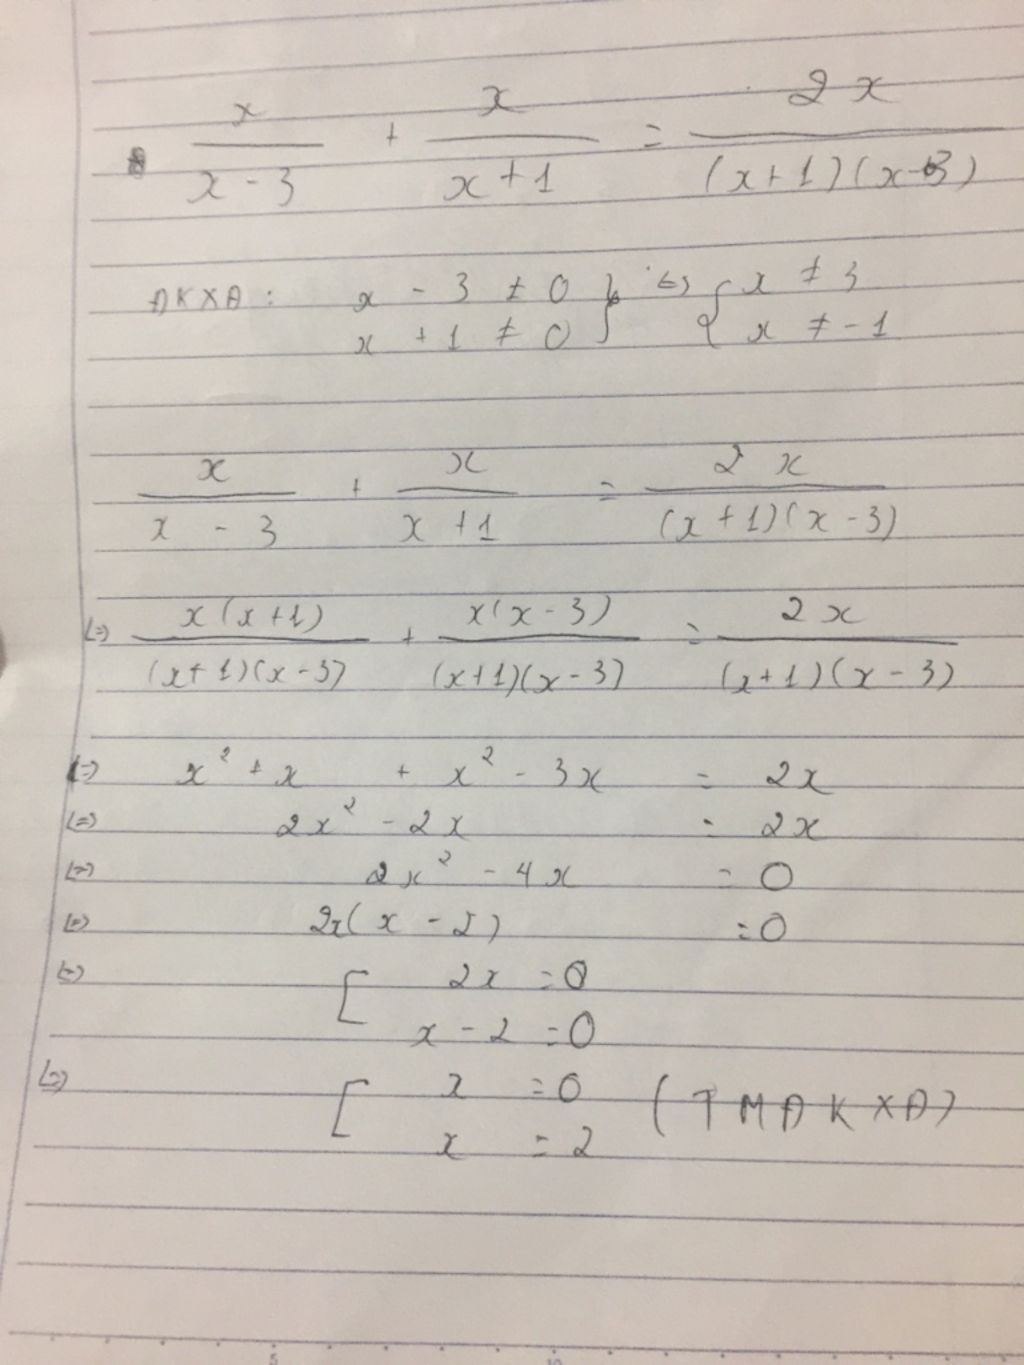 x/(x - 3) + x/(x + 1) = 2x/((x + 1)(x - 3))
ĐKXĐ: x - 3 ≠ 0 } <=> { x ≠ 3
x + 1 ≠ 0 } { x ≠ -1
x/(x - 3) + x/(x + 1) = 2x/((x + 1)(x - 3))
<=> x(x + 1)/((x + 1)(x - 3)) + x(x - 3)/((x + 1)(x - 3)) = 2x/((x + 1)(x - 3))
<=> x² + x + x² - 3x = 2x
<=> 2x² - 2x = 2x
<=> 2x² - 4x = 0
<=> 2x(x - 2) = 0
<=> [ 2x = 0
x - 2 = 0
<=> [ x = 0 (TMĐKXĐ)
x = 2
5 10